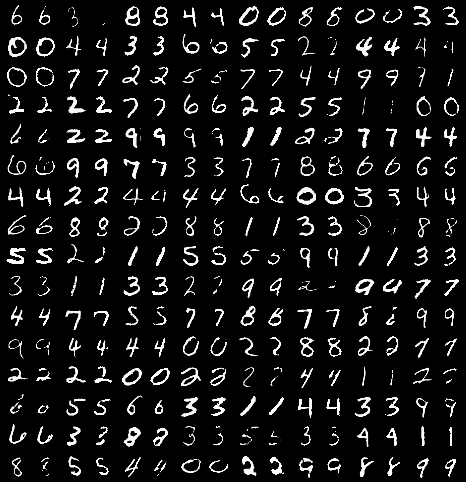 6 6 3 8 8 4 4 0 0 8 8 0 0 3 3
0 0 4 4 3 3 6 6 5 5 2 2 4 4 4
0 0 7 7 2 2 5 5 7 7 4 4 9 9 7 1
2 2 2 2 7 7 6 6 2 2 5 5 1 1 0 0
6 6 2 2 9 9 9 9 1 1 2 2 7 7 4 4
6 6 9 9 7 7 3 3 7 7 8 8 6 6 6 6
4 4 2 2 4 4 4 4 6 6 0 0 3 3 4 4
6 6 8 8 2 2 8 8 1 1 3 3 8 8 8
5 5 2 2 1 1 5 5 5 5 9 9 1 1 3 3
3 3 1 1 3 3 2 2 9 9 2 9 9 7 7
4 4 7 7 5 5 7 7 8 8 7 7 8 8 9 9
9 9 4 4 4 4 0 0 2 2 8 8 2 2 7 7
2 2 2 2 0 0 2 2 2 2 4 4 1 1 2 2
6 6 5 5 6 6 3 3 1 1 4 4 3 3 9 9
6 6 3 3 8 8 3 3 5 5 3 3 4 4 1 1
8 8 5 5 4 4 0 0 2 2 9 9 8 8 9 9